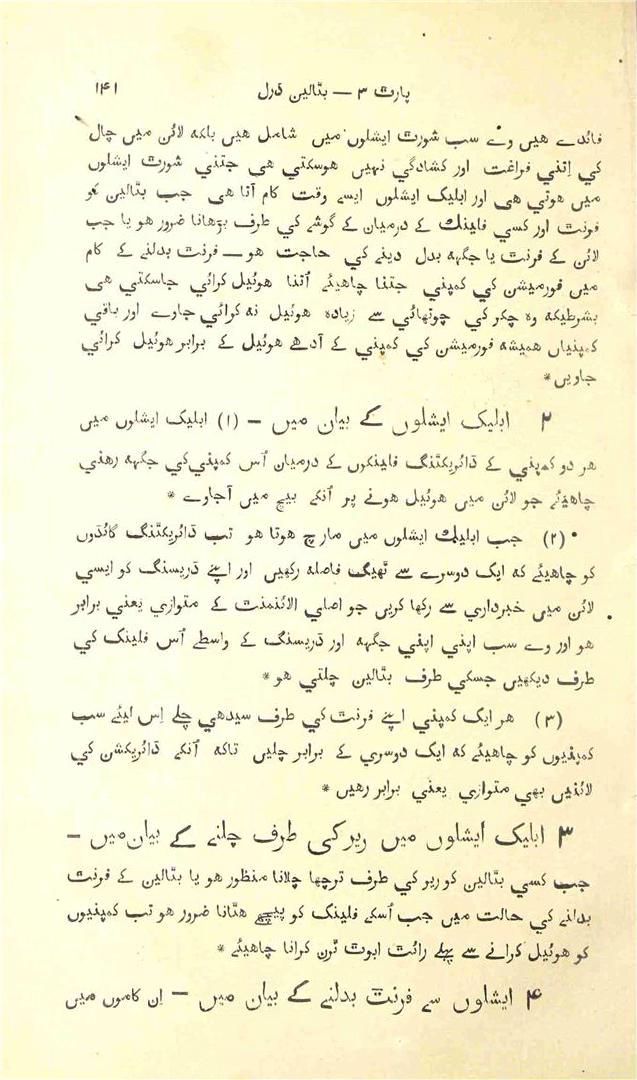 پارٹ ۳ — بٹالین ڈرل ۱۴۱
فائدے هیں وے سب شورت ایشلوں میں شامل هیں بلکه لائن میں چال
کي اِتني فراغت اور کشادگي نہیں هوسکتي هی جتني شورت ایشلوں
میں هوتي هی اور ابلیک ایشلوں ایسے وقت کام آتا هی جب بٹالین کو
فرنٹ اور کسي فلینک کے درمیان کے گوشے کي طرف بڑھانا ضرور هو یا جب
لائن کے فرنٹ یا جگہه بدل دینے کي حاجت هو — فرنٹ بدلنے کے کام
میں فورمیشن کي کمپني جتنا چاهیئے اُتنا هوئیل کرائي جاسکتي هی
بشرطیکه وہ چکر کي چوتھائي سے زیادہ هوئیل نه کرائي جاوے اور باقي
کمپنیاں همیشه فورمیشن کي کمپني کے آدھے هوئیل کے برابر هوئیل کرائي
جاویں *
۲ ابلیک ایشلوں کے بیان میں — (۱) ابلیک ایشلوں میں
هر دو کمپني کے ڈائریکٹنگ فلینکوں کے درمیان اُس کمپني کي جگہه رهني
چاهیئے جو لائن میں هوئیل هونے پر اُنکے بیچ میں آجاوے *
(۲) جب ابلیک ایشلوں میں مارچ هوتا هو تب ڈائریکٹنگ گائڈوں
کو چاهیئے که ایک دوسرے سے ٹھیک فاصله رکھیں اور اپنے ڈریسنگ کو ایسي
لائن میں خبرداري سے رکھا کریں جو اصلي الائنمنٹ کے متوازي یعني برابر
هو اور وے سب اپني اپني جگہه اور ڈریسنگ کے واسطے اُس فلینک کي
طرف دیکھیں جسکي طرف بٹالین چلتي هو *
(۳) هر ایک کمپني اپنے فرنٹ کي طرف سیدھي چلے اِس لیئے سب
کمپنیوں کو چاهیئے که ایک دوسري کے برابر چلیں تاکه اُنکے ڈائریکشن کي
لائنیں بھي متوازي یعني برابر رهیں *
۳ ابلیک ایشلوں میں ریر کي طرف چلنے کے بیان میں —
جب کسي بٹالین کو ریر کي طرف ترچھا چلانا منظور هو یا بٹالین کے فرنٹ
بدلنے کي حالت میں جب اُسکے فلینک کو پیچھے هٹانا ضرور هو تب کمپنیوں
کو هوئیل کرانے سے پہلے رائٹ ابوٹ ٹرن کرانا چاهیئے *
۴ ایشلوں سے فرنٹ بدلنے کے بیان میں — اِن کاموں میں